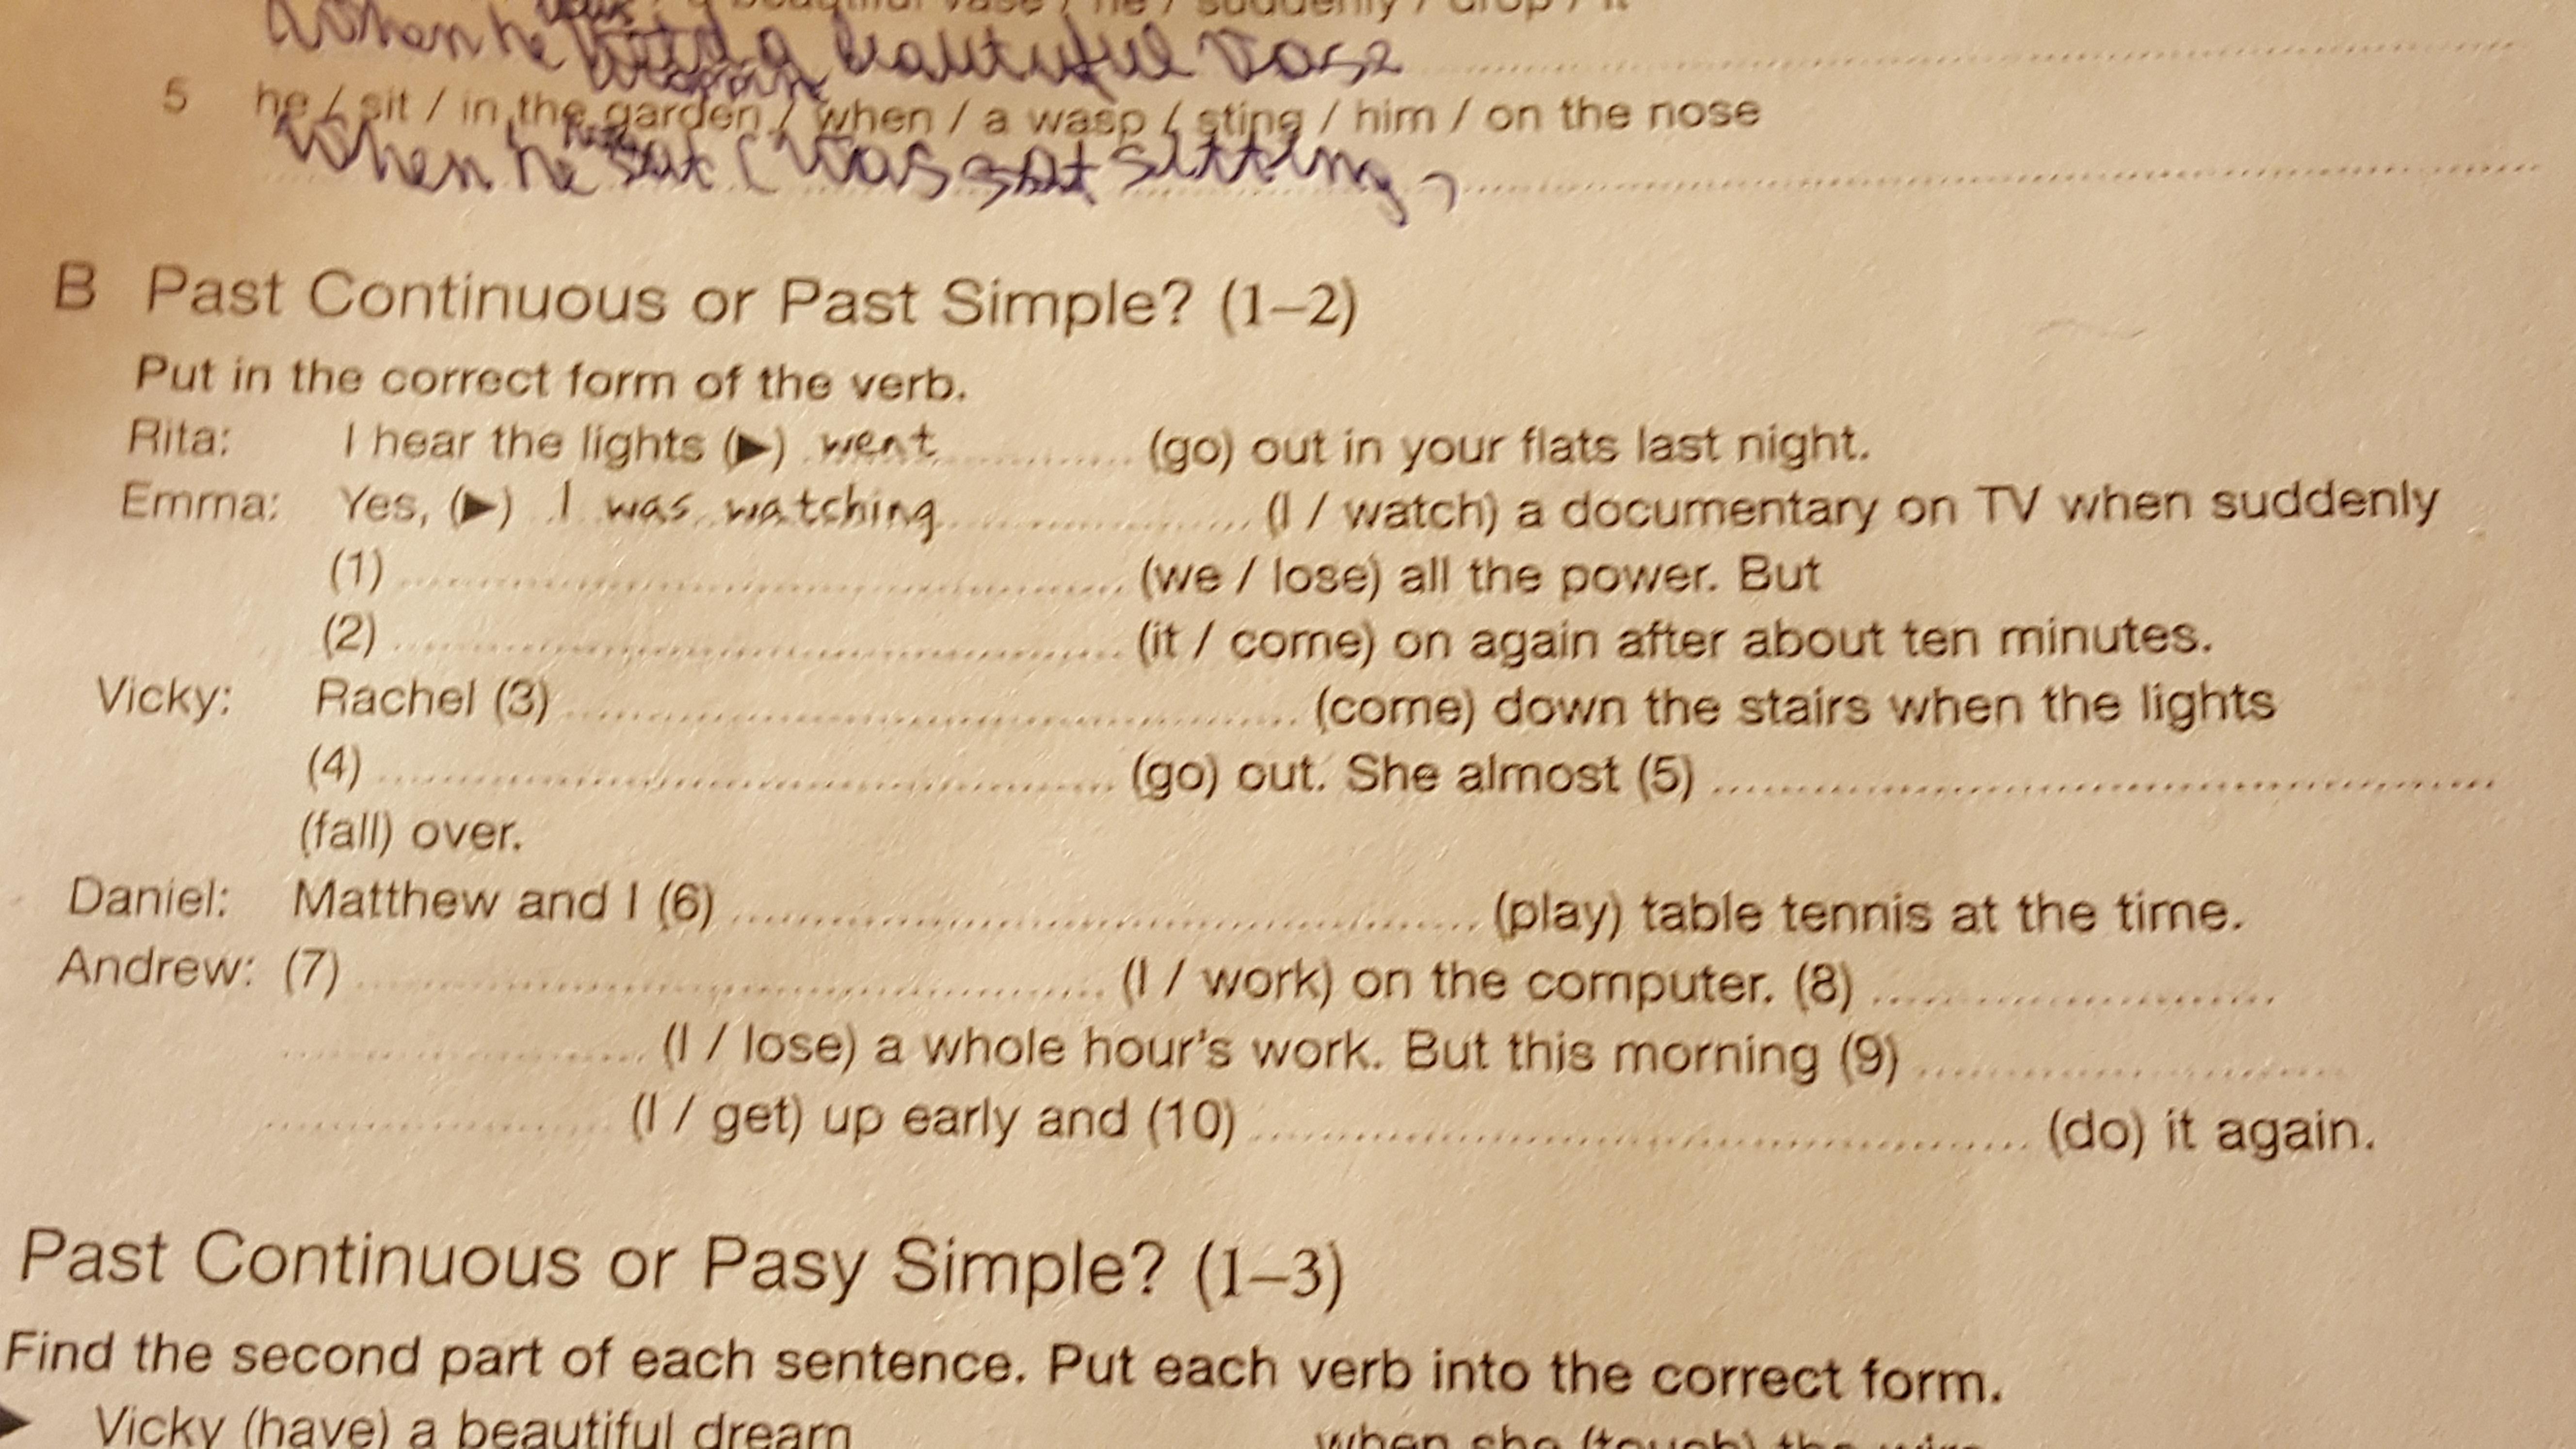 a beautiful vase / he / suddenly / drop / it
When he a beautiful vase
5 he / sit / in the garden / when / a wasp / sting / him / on the nose
When he sat ( was sat sitting,
B Past Continuous or Past Simple? (1–2)
Put in the correct form of the verb.
Rita: I hear the lights (▶) went (go) out in your flats last night.
Emma: Yes, (▶) I was watching (I / watch) a documentary on TV when suddenly
(1) (we / lose) all the power. But
(2) (it / come) on again after about ten minutes.
Vicky: Rachel (3) (come) down the stairs when the lights
(4) (go) out. She almost (5)
(fall) over.
Daniel: Matthew and I (6) (play) table tennis at the time.
Andrew: (7) (I / work) on the computer. (8)
(I / lose) a whole hour's work. But this morning (9)
(I / get) up early and (10) (do) it again.
Past Continuous or Pasy Simple? (1–3)
Find the second part of each sentence. Put each verb into the correct form.
▶ Vicky (have) a beautiful dream when she (touch) the wire